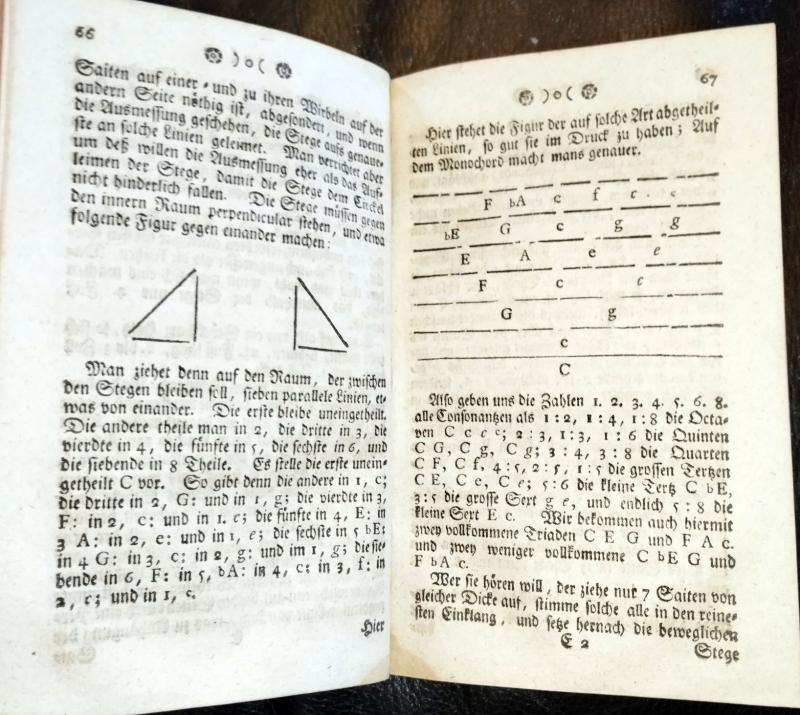 66
)o(
Saiten auf einer - und zu ihren Wirbeln auf der
andern Seite nöthig ist, abgesondert, und wenn
die Ausmessung geschehen, die Stege aufs genaue-
ste an solche Linien geleimet. Man verrichtet aber
um deß willen die Ausmessung eher als das Auf-
leimen der Stege, damit die Stege dem Circkel
nicht hinderlich fallen. Die Stege müssen gegen
den innern Raum perpendicular stehen, und etwa
folgende Figur gegen einander machen:
Man ziehet denn auf den Raum, der zwischen
den Stegen bleiben soll, sieben parallele Linien, et-
was von einander. Die erste bleibe uneingetheilt.
Die andere theile man in 2, die dritte in 3, die
vierdte in 4, die fünfte in 5, die sechste in 6, und
die siebende in 8 Theile. Es stelle die erste unein-
getheilt C vor. So gibt denn die andere in 1, c;
die dritte in 2, G: und in 1, g; die vierdte in 3,
F: in 2, c: und in 1. c; die fünfte in 4, E: in
3 A: in 2, e: und in 1, e; die sechste in 5 bE:
in 4 G: in 3, c: in 2, g: und im 1, g; die sie-
bende in 6, F: in 5, bA: in 4, c: in 3, f: in
2, c; und in 1, c.
Hier
67
)o(
Hier stehet die Figur der auf solche Art abgetheil-
ten Linien, so gut sie im Druck zu haben; Auf
dem Monochord macht mans genauer.
F bA c f c. c
bE G c g g
E A e e
F c c
G g
c
C
Also geben uns die Zahlen 1. 2. 3. 4. 5. 6. 8.
alle Consonantzen als 1:2, 1:4, 1:8 die Octa-
ven C c c c; 2:3, 1:3, 1:6 die Quinten
C G, C g, C g; 3:4, 3:8 die Quarten
C F, C f, 4:5, 2:5, 1:5 die grossen Tertzen
C E, C e, C e; 5:6 die kleine Tertz C bE,
3:5 die grosse Sext g e, und endlich 5:8 die
kleine Sext E c. Wir bekommen auch hiermit
zwey vollkommene Triaden C E G und F A c.
und zwey weniger vollkommene C bE G und
F bA c.
Wer sie hören will, der ziehe nur 7 Saiten von
gleicher Dicke auf, stimme solche alle in den reine-
sten Einklang, und setze hernach die beweglichen
E 2
Stege